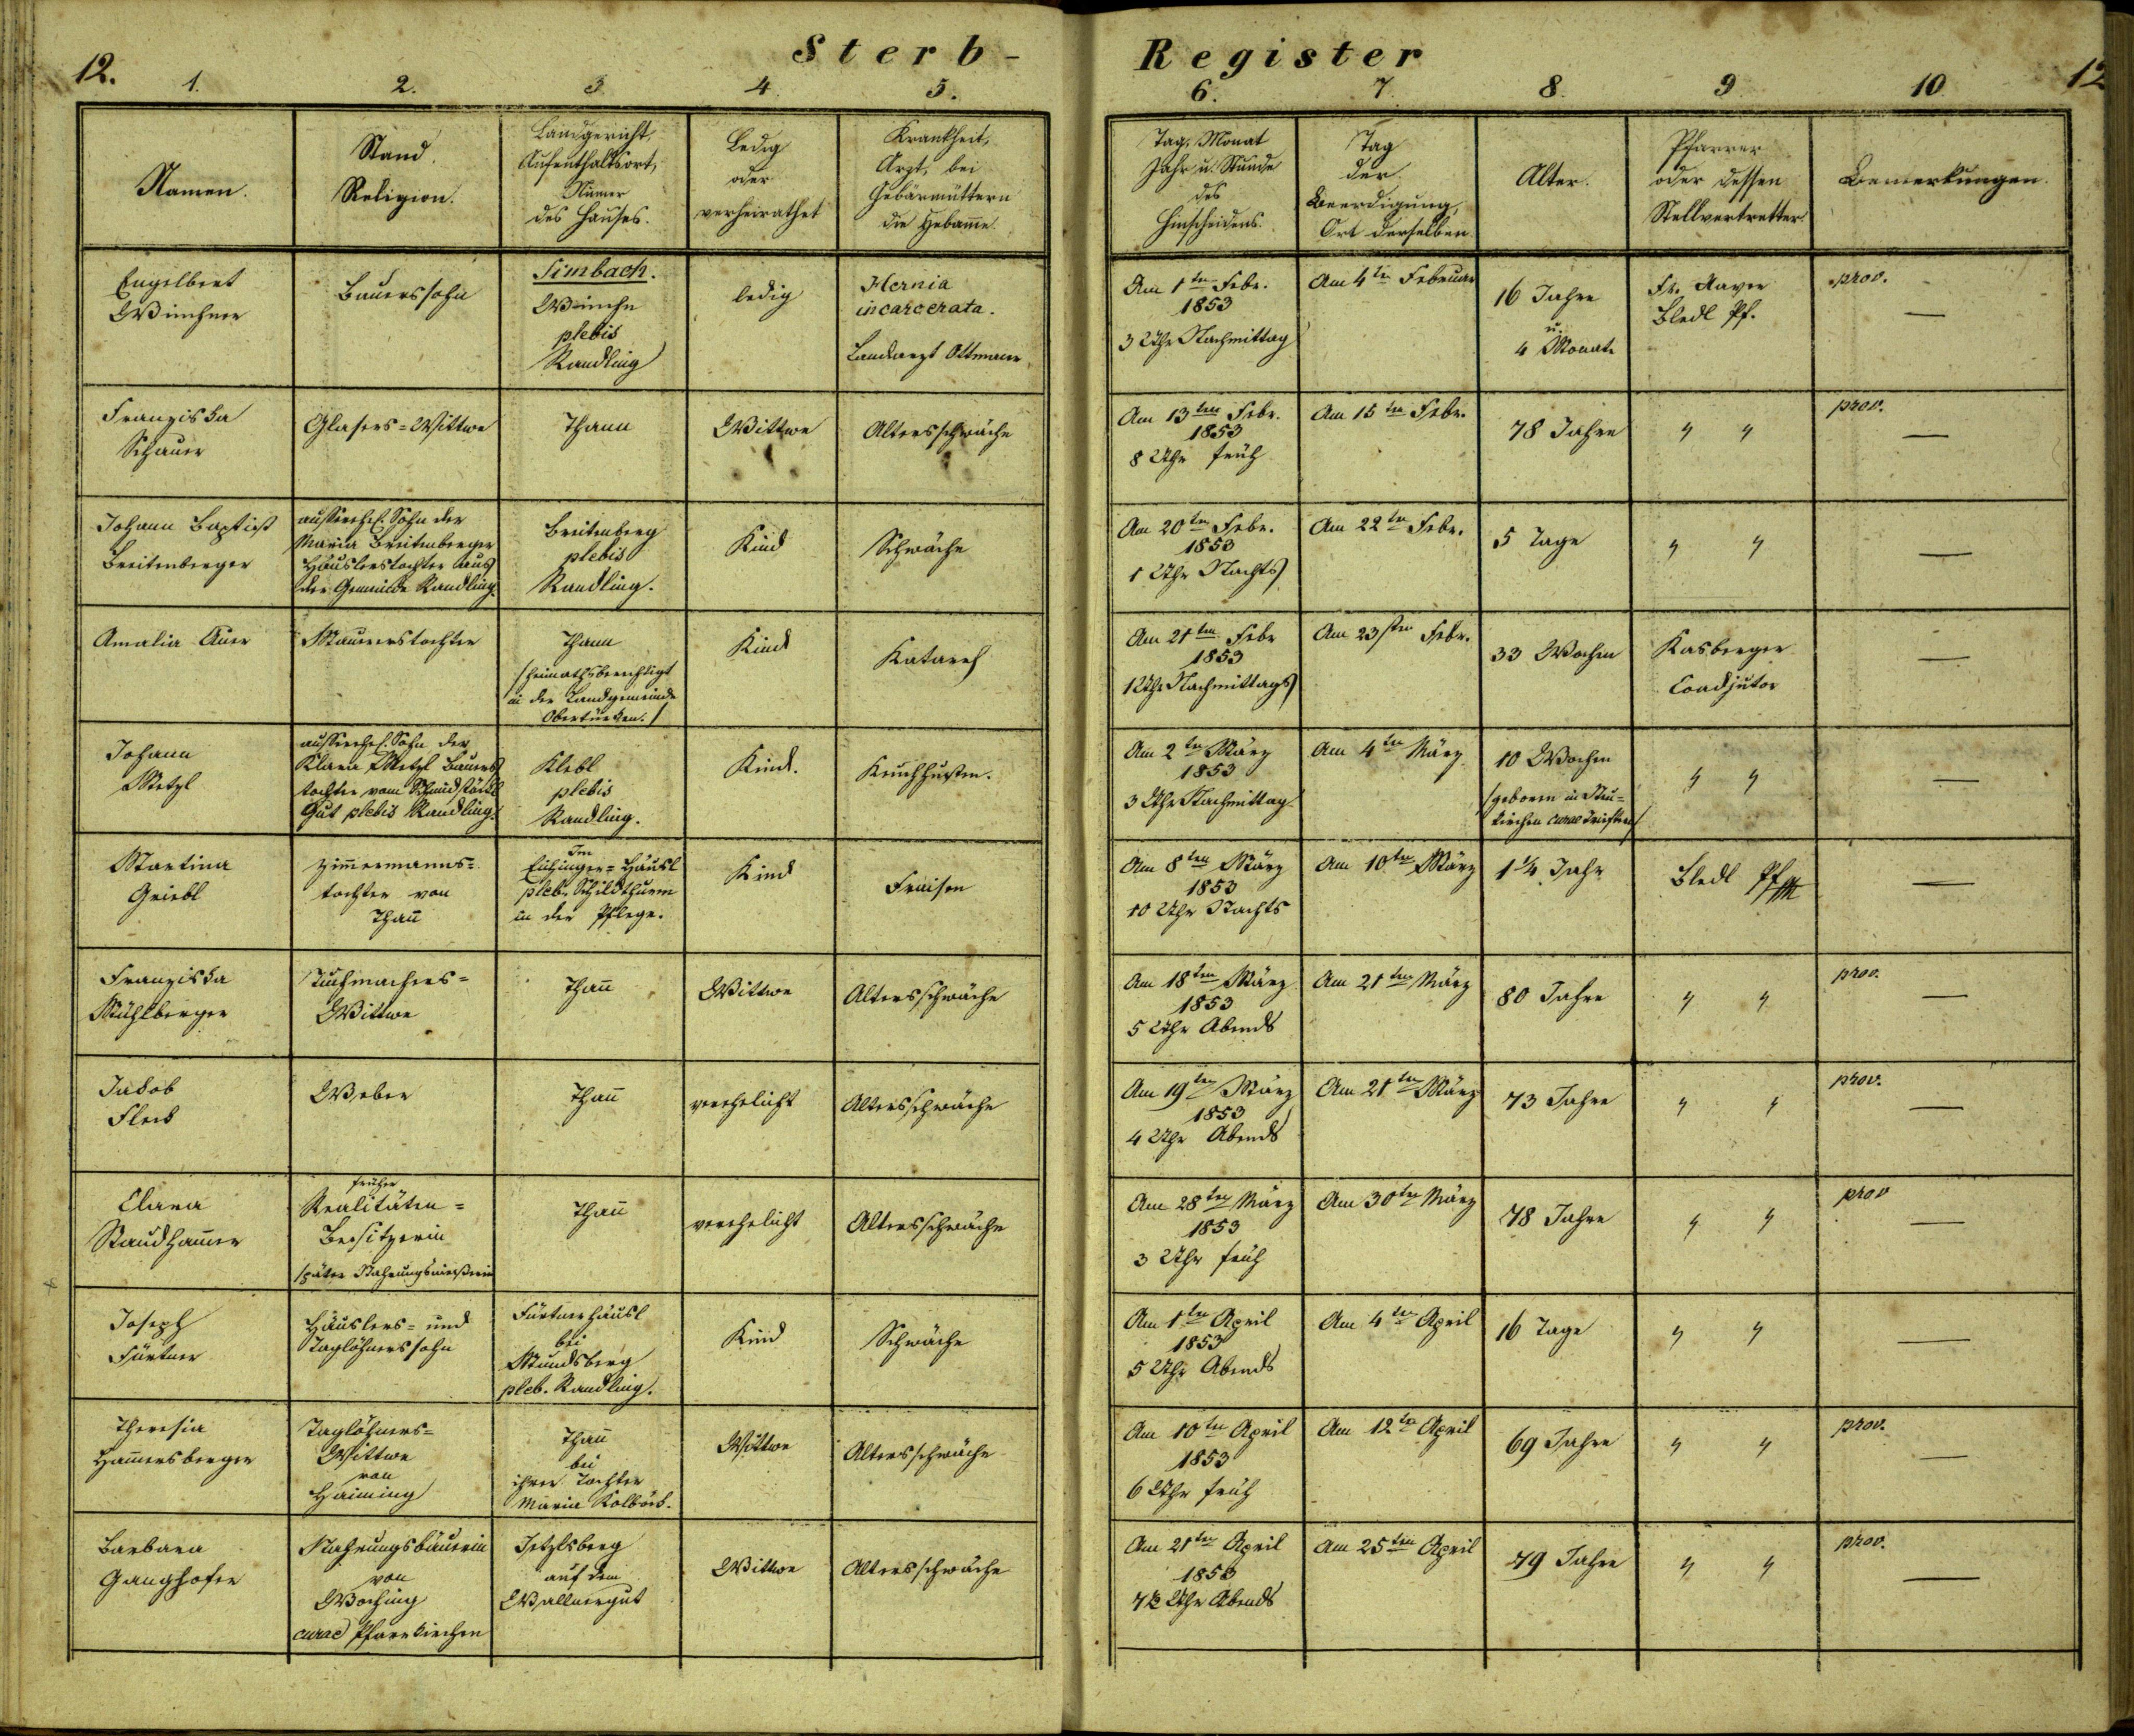 Sterb-
Register
12.
1. 2. 3. 4. 5.
6. 7. 8. 9. 10
12
Namen.
Stand.
Religion.
Landgericht,
Aufenthaltsort,
Numer
des Hauses.
Ledig
oder
verheirathet
Krankheit,
Arzt, bei
Gebärmüttern
die Hebam̄e.
Tag, Monat
Jahr u. Stunde
des
Hinscheidens.
Tag
der
Beerdigung,
Ort derselben.
Alter.
Pfarrer
oder dessen
Stellvertretter.
Bemerkungen.
Engelbert
Bauerssohn
Simbach.
plebis
Randling
ledig
Hernia
incarcerata.
Landarzt Ottmann
Am 1ten Febr.
1853
3 Uhr Nachmittag
Am 4ten Februar
16 Jahre
u.
4 Monate
Fr. Xaver
Bledl Pf.
prov.
—
Franziska
Schauer
Glasers-Wittwe
Thann
Wittwe
Altersschwäche
Am 13ten Febr.
1853
8 Uhr früh
Am 15ten Febr.
78 Jahre
" "
prov.
—
Johann Baptist
Breitenberger
ausserehel. Sohn der
Maria Breitenberger
Häuslerstochter aus
der Gemeinde Randling.
Breitenberg
plebis
Randling.
Kind
Schwäche
Am 20ten Febr.
1853
1 Uhr Nachts
Am 22ten Febr.
5 Tage
" "
—
Amalia Auer
Maurerstochter
Thann
/heimathsberechtigt
in der Landgemeinde
Obertürken./
Kind
Katarrh
Am 21ten Febr
1853
1 Uhr Nachmittags
Am 23sten Febr.
33 Wochen
Kasberger
Coadjutor
—
Johann
Metzl
ausserehel. Sohn der
Klara Metzl Bauers
tochter vom
Gut plebis Randling.
Klebl
plebis
Randling.
Kind.
Keuchhusten.
Am 2ten März
1853
3 Uhr Nachmittag
Am 4ten März
10 Wochen
/geboren in Neu-
kirchen curae Triftern/
" "
—
Martina
Griebl
Zim̄ermanns-
tochter von
Than̄
Im
Häusl
pleb. Schildthurn
in der Pflege.
Kind
Fraisen
Am 8ten März
1853
10 Uhr Nachts
Am 10ten März
1¼ Jahr
Bledl Pf
—
Franziska
Mühlberger
Tuchmachers-
Wittwe
Than̄
Wittwe
Altersschwäche
Am 18ten März
1853
5 Uhr Abends
Am 21ten März
80 Jahre
" "
prov.
—
Jakob
Fleck
Weber
Than̄
verehelicht
Altersschwäche
Am 19ten März
1853
4 Uhr Abends
Am 21ten März
73 Jahre
" "
prov.
—
Clara
Staudham̄er
früher
Realitäten-
Besitzerin
später
Than̄
verehelicht
Altersschwäche
Am 28ten März
1853
3 Uhr früh
Am 30ten März
78 Jahre
" "
prov
—
Joseph
Fürtner
Häuslers- und
Taglöhnerssohn
Fürtnerhäusl
bei
Mundsberg
pleb. Randling.
Kind
Schwäche
Am 1ten April
1853
5 Uhr Abends
Am 4ten April
16 Tage
" "
—
Theresia
Ham̄ersberger
Taglöhners-
Wittwe
von
Haiming
Than̄
bei
ihrer Tochter
Maria Kolböck.
Wittwe
Altersschwäche
Am 10ten April
1853
6 Uhr früh
Am 12ten April
69 Jahre
" "
prov.
—
Barbara
Ganghofer
Nahrungsbäuerin
von
Woching
curae Pfarrkirchen
Jetzlsberg
auf dem
Wallnergut
Wittwe
Altersschwäche
Am 21ten April
1853
7½ Uhr Abends
Am 25ten April
79 Jahre
" "
prov.
—